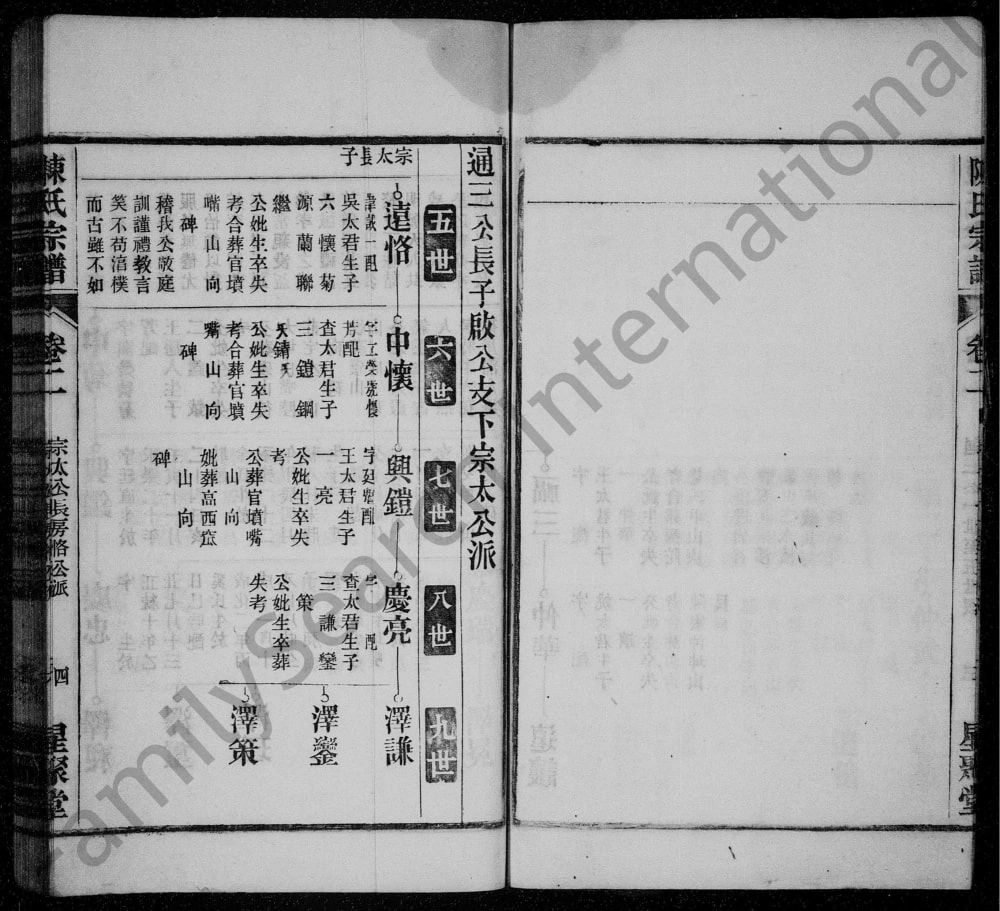 通三公長子啟公支下宗太公派
五世
六世
七世
八世
九世
宗太長子
遠恪
諱誠一配
吳太君生子
六 懷 菊
源 蘭 聯
繼
公妣生卒失
考合葬官墳
嘴 山 向
碑
稽我公敦庭
訓謹禮教言
笑不苟渻樸
而古雖不如
中懷
芳配
查太君生子
三 鎧 鋼
夭錆夭
公妣生卒失
考合葬官墳
嘴 山 向
碑
興鎧
字廷 配
王太君生子
一 亮
公妣生卒失
考
公葬官墳嘴
山 向
妣葬高西窊
山 向
碑
慶亮
字 配
查太君生子
三 謙 鑾
策
公妣生卒葬
失考
澤謙
澤鑾
澤策
陳氏宗譜
卷二
宗太公長房恪公派
四
星聚堂
陳氏宗譜
卷二
星聚堂
familysearch international